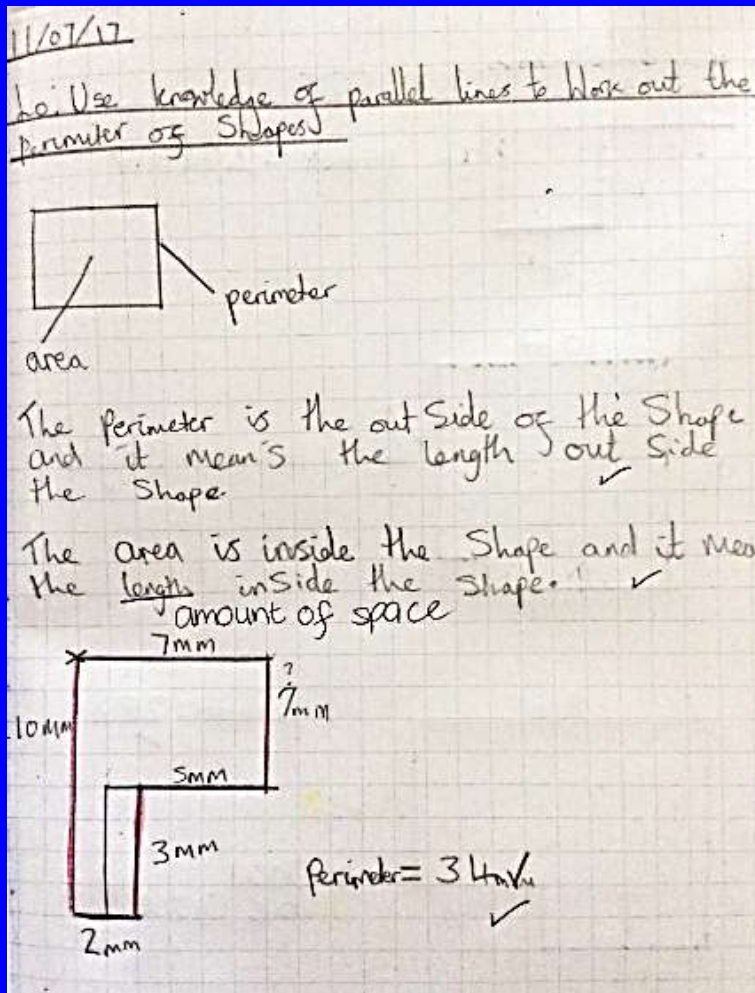 11/07/17
Lo: Use knowledge of parallel lines to Work out the
perimeter of Shapes
perimeter
area
The Perimeter is the out Side of the Shape
and it mean's the length out Side
the Shape.
The area is inside the Shape and it mea
the length inSide the Shape.
amount of space
7mm
?
7mm
10mm
5mm
3mm
Perimeter = 34mm
2mm